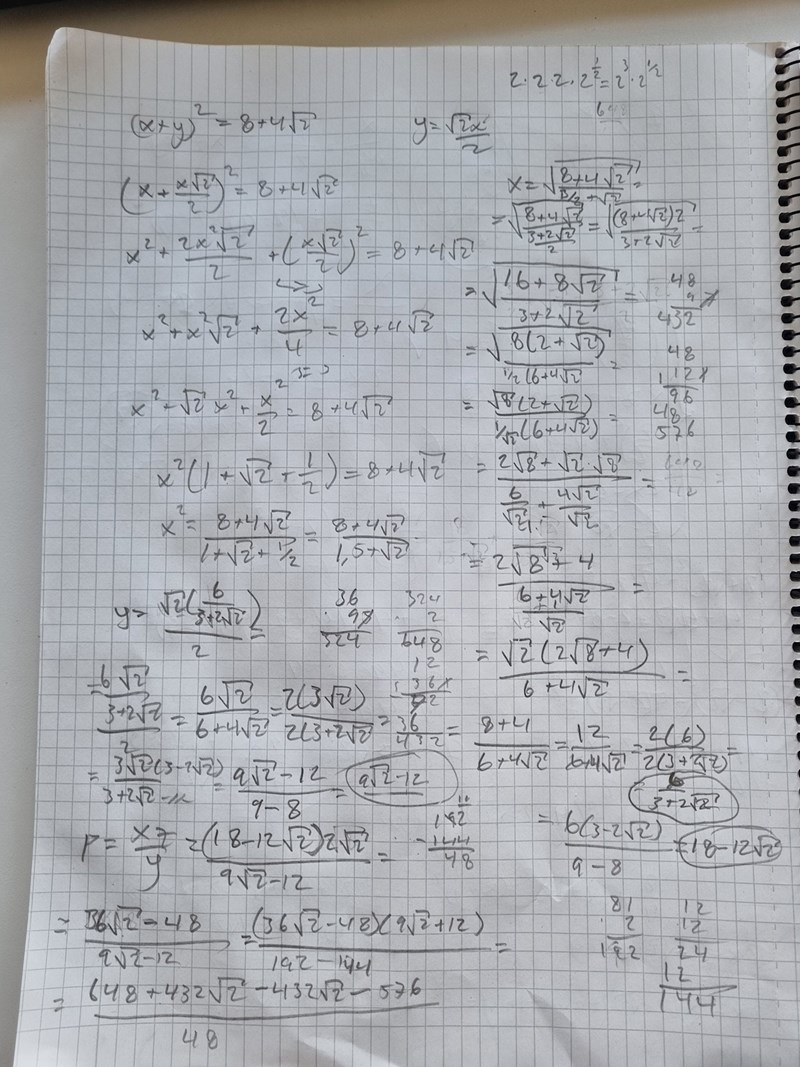 2·2·2·2^{1/2} = 2^3·2^{1/2}
(x+y)^2 = 8+4√2
y = √2x/2
(x + x√2/2)^2 = 8+4√2
x^2 + 2x^2√2/2 + (x√2/2)^2 = 8+4√2
x^2 + x^2√2 + 2x^2/4 = 8+4√2
x^2 + √2 x^2 + x^2/2 = 8+4√2
x^2(1 + √2 + 1/2) = 8+4√2
x^2 = (8+4√2)/(1+√2+1/2) = (8+4√2)/(1,5+√2)
x = √((8+4√2)/(3/2+√2)) =
= √((8+4√2)/((3+2√2)/2)) = √((8+4√2)2/(3+2√2)) =
= √((16+8√2)/(3+2√2)) =
= √(8(2+√2)/(1/2(6+4√2))) =
= √8(2+√2)/(1/√2(6+4√2)) =
= (2√8+√2·√8)/(6/√2+4√2/√2) =
= (2√8+4)/((6+4√2)/√2) =
= √2(2√8+4)/(6+4√2) =
= (8+4)/(6+4√2) = 12/(6+4√2) = 2(6)/(2(3+2√2)) =
6/(3+2√2)
= 6(3-2√2)/(9-8) = 18-12√2
48
9x
432
48
12x
96
48
576
y = √2(6/(3+2√2))/2 =
36
·9x
324
324
2
648
12
·36x
72
36
432
= (6√2/(3+2√2))/2 = 6√2/(6+4√2) = 2(3√2)/(2(3+2√2)) =
= 3√2(3-2√2)/(3+2√2 -11- = (9√2-12)/(9-8) = 9√2-12
P = xz/y = (18-12√2)2√2/(9√2-12) =
192
-144
48
= (36√2-48)/(9√2-12) = (36√2-48)(9√2+12)/(192-144) =
= (648+432√2-432√2-576)/48
81
·2
192
12
·12
24
12
144